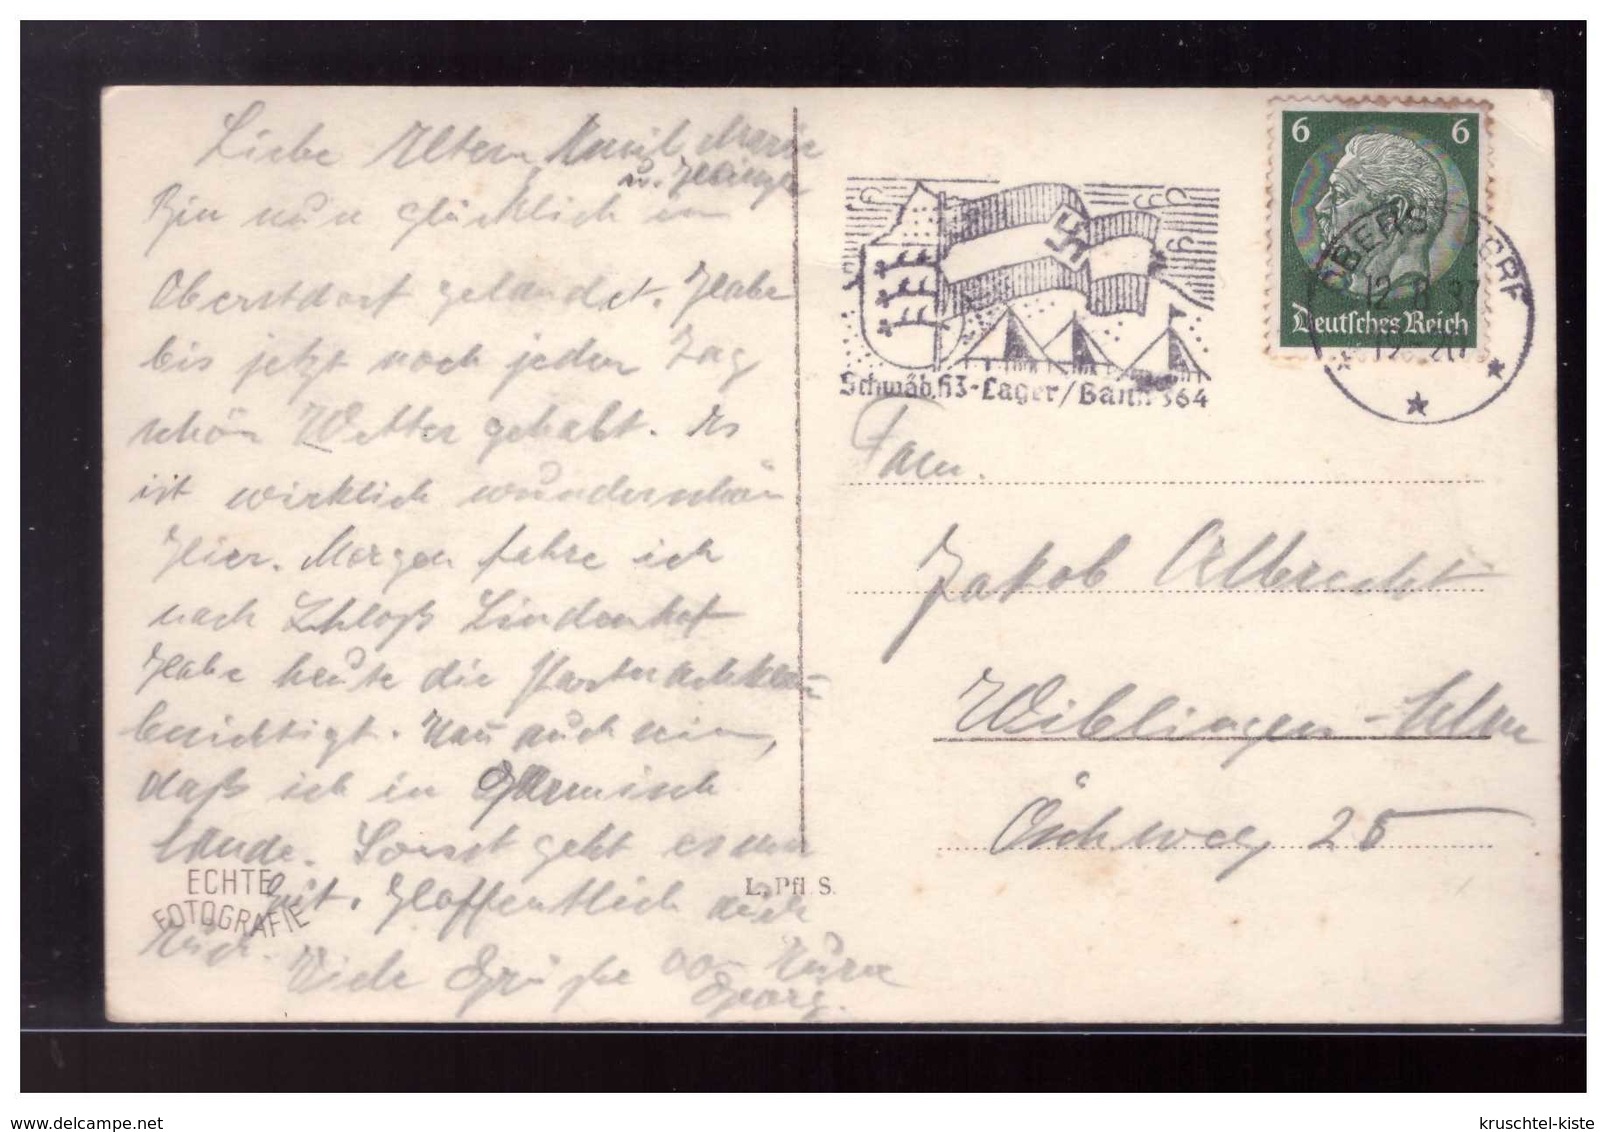 Liebe Eltern, Marie
u.
Bin nun glücklich in
Oberstdorf gelandet. Habe
bis jetzt noch jeden Tag
schön Wetter gehabt. Es
ist wirklich wunderschön
hier. Morgen fahre ich
nach Schloß Linderhof
Habe heute die
besichtigt. auch ein,
daß ich in Garmisch
lande. Sonst geht es mir
gut. Hoffentlich auch
Euch.
Viele Grüße von Eurem
Georg.
ECHTE
FOTOGRAFIE
L. Pfl. S.
6 6
Deutsches Reich
OBERSTDORF
12.8.37
19-20
Schwäb. HJ-Lager/Bann 364
Fam.
Jakob Albrecht
Wiblingen-Ulm
Öschweg 25
delcampe.net
kruschtel-kiste